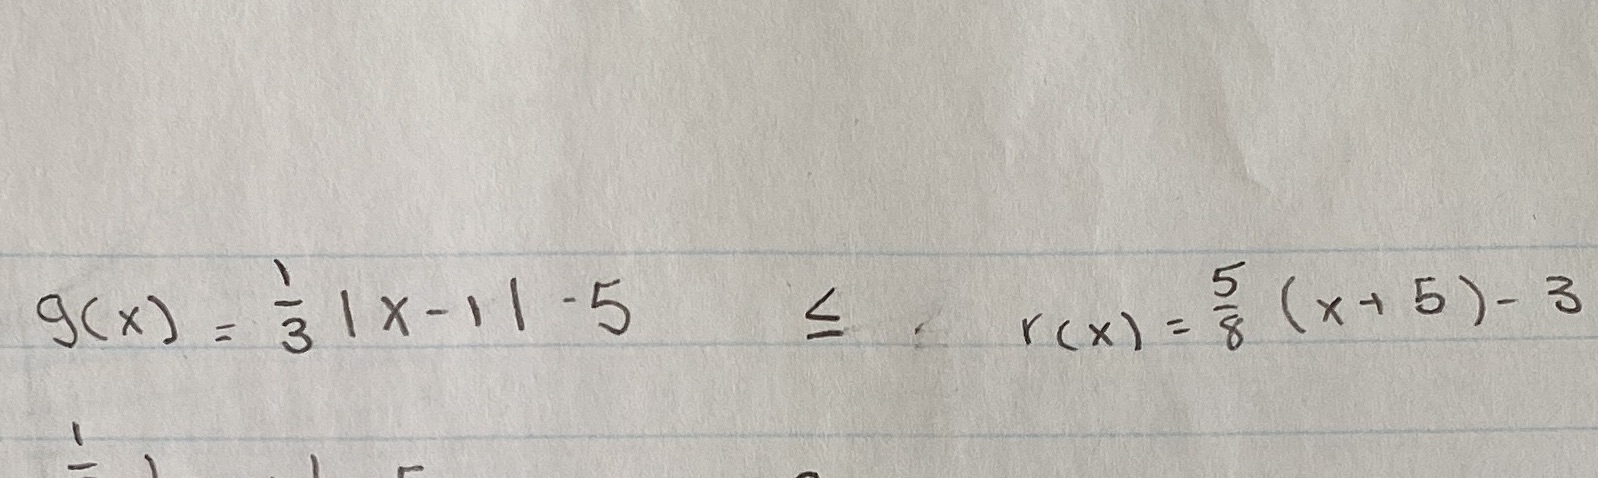 g(x) = 1/3 |x-1| -5 ≤ r(x) = 5/8 (x+5) - 3